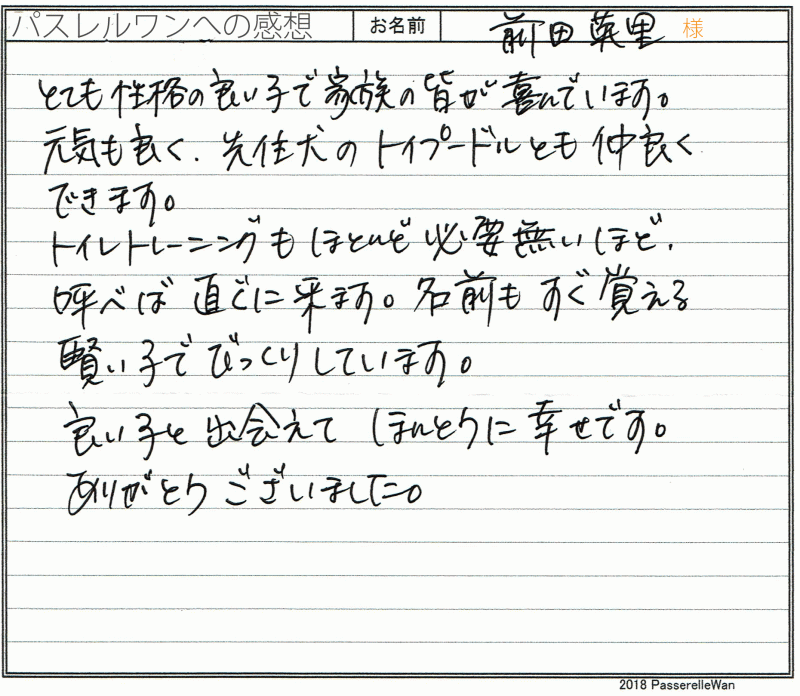 パスレルワンへの感想 お名前 前田英里 様
とても性格の良い子で家族の皆が喜んでいます。
元気も良く、先住犬のトイプードルとも仲良く
できます。
トイレトレーニングもほとんど必要無いほど、
呼べば直ぐに来ます。名前もすぐ覚える
賢い子でびっくりしています。
良い子と出会えてほんとうに幸せです。
ありがとうございました。
2018 PasserelleWan